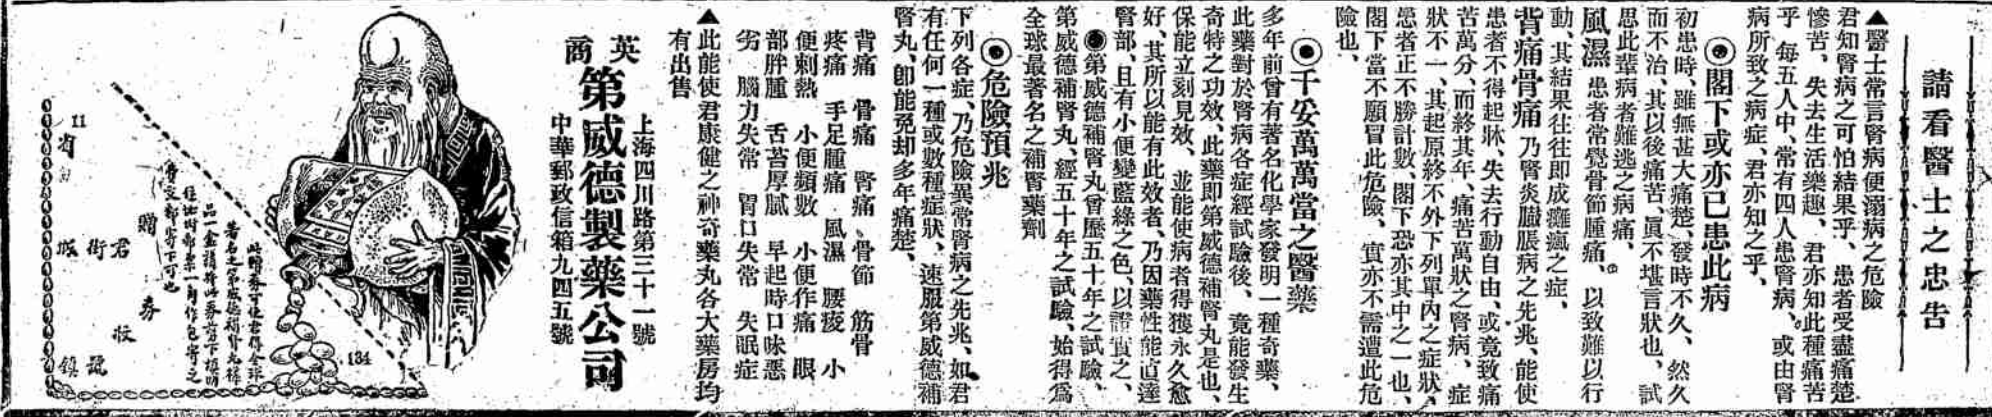 請看醫士之忠告
▲醫士常言腎病便溺病之危險
君知腎病之可怕結果乎、患者受盡痛楚
慘苦、失去生活樂趣、君亦知此種痛苦
乎、每五人中、常有四人患腎病、或由腎
病所致之病症、君亦知之乎、
◉閣下或亦已患此病
初患時、雖無甚大痛楚、發時不久、然久
而不治、其以後痛苦、眞不堪言狀也、試
思此輩病者難逃之病痛、
風濕 患者常覺骨節腫痛、以致難以行
動、其結果往往即成癱瘋之症、
背痛骨痛 乃腎炎臌脹病之先兆、能使
患者不得起牀、失去行動自由、或竟致痛
苦萬分、而終其年、痛苦萬狀之腎病、症
狀不一、其起原終不外下列單內之症狀、
患者正不勝計數、閣下恐亦其中之一也、
閣下當不願冒此危險、實亦不需遭此危
險也、
◉千妥萬萬當之醫藥
多年前曾有著名化學家發明一種奇藥、
此藥對於腎病各症經試驗後、竟能發生
奇特之功效、此藥即第威德補腎丸是也、
保能立刻見效、並能使病者得獲永久愈
好、其所以能有此效者、乃因藥性能直達
腎部、且有小便變藍綠之色、以證實之、
◉第威德補腎丸曾歷五十年之試驗、
第威德補腎丸、經五十年之試驗、始得爲
全球最著名之補腎藥劑
◉危險預兆
下列各症、乃危險異常腎病之先兆、如君
有任何一種或數種症狀、速服第威德補
腎丸、卽能免却多年痛楚、
背痛 骨痛 腎痛、骨節 筋骨
疼痛 手足腫痛 風濕 腰痠 小
便刺熱 小便頻數 小便作痛 眼
部胖腫 舌苔厚膩 早起時口味惡
劣 腦力失常 胃口失常 失眠症
▲此能使君康健之神奇藥丸各大藥房均
有出售
英商 第威德製藥公司
上海四川路第三十一號
中華郵政信箱九四五號
134
此贈券可使君得全球
著名之第威德補腎丸樣
品一盒請將此券剪下填明
住址附郵票一角作包寄之
費交郵寄下可也
贈券
君收
街 號
城 鎮
省
11